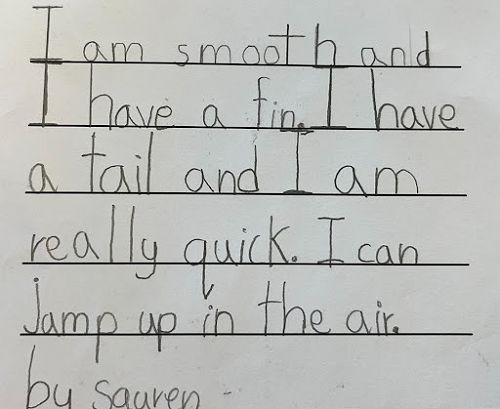 I am smooth and
I have a fin. I have
a tail and I am
really quick. I can
jamp up in the air.
by sauren